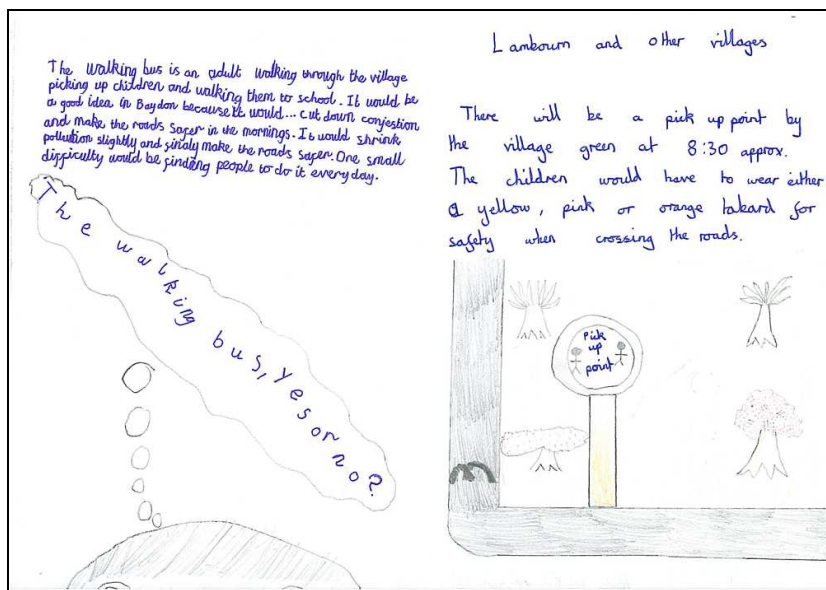 The walking bus is an adult walking through the village
picking up children and walking them to school. It would be
a good idea in Baydon because it would... cut down conjestion
and make the roads safer in the mornings. It would shrink
pollution slightly and finaly make the roads safer. One small
difficulty would be finding people to do it everyday.
The walking bus, yes or no?
Lambourn and other villages
There will be a pick up point by
the village green at 8:30 approx.
The children would have to wear either
a yellow, pink or orange takard for
safety when crossing the roads.
Pick
up
point